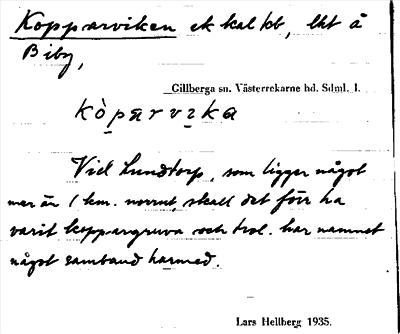 Kopparviken ek kal kb, lht å
Biby,
Gillberga sn. Västerrekarne hd. Sdml. l.
kòparvika
Vid Lundtorp, som ligger något
mer än 1 km. norrut, skall det förr ha
varit koppargruva och trol. har namnet
något samband härmed.
Lars Hellberg 1935.